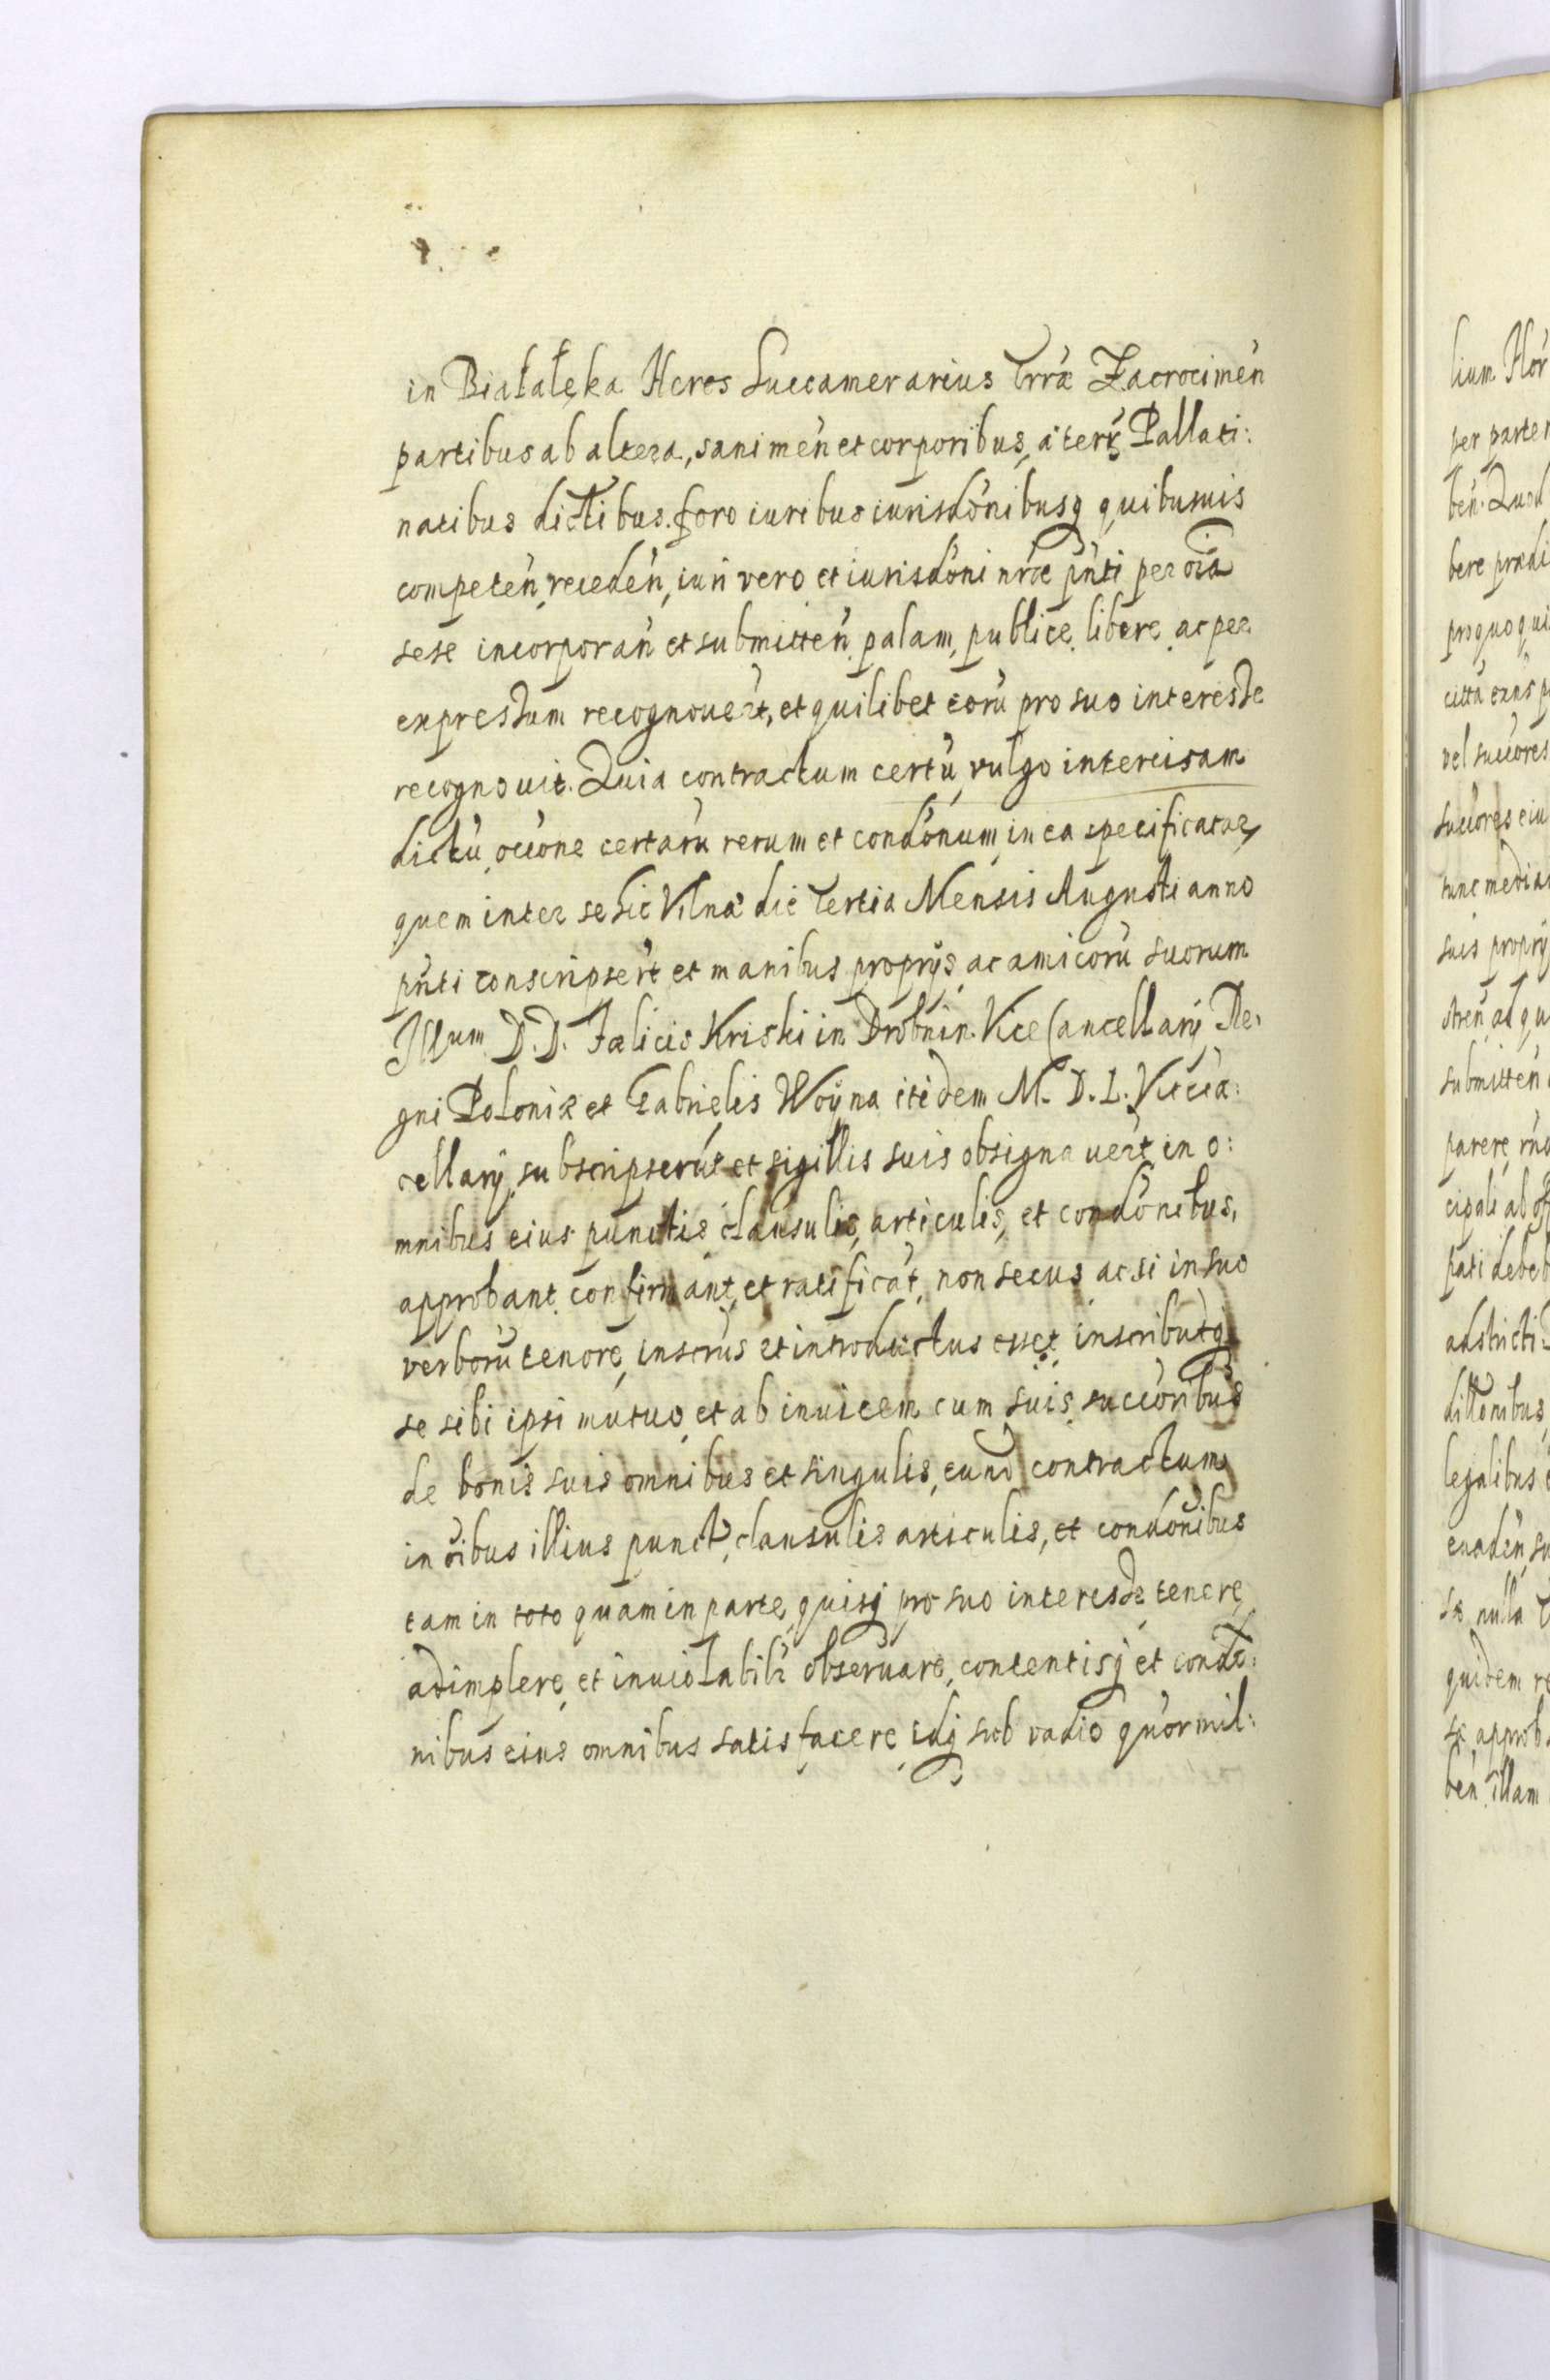 in Białałęka Heres Succamerarius Trræ Zacrocimeń
partibus ab altera, sani meń et corporibus, á terŕ Pallati:
natibus dictibus. foro iuribus iurisdónibusq quibusuis
competeń, recedeń, iuri vero et iurisdóni nræ pńti per oia
sese incorporań et submitteń, palam, publice, libere, ac per
expressum recognouert, et quilibet eorū pro suo interesse
recognouit. Quia contractum certū, vulgo intercisam
dictū, occóne certarū rerum et condónum, in ea specificatar,
quem inter se hic Vilnæ die Tertia Mensis Augusti anno
pńti conscripsert et manibus proprijs ac amicorū suorum
Illum D. D. Fælicis Kriski in Drobnin. Vice Cancellarij Re,
gni Poloniæ et Gabrielis Woÿna itidem M. D. L. Viceca:
cellarij, subscripserūt et sigillis suis obsignauert in o:
mnibus eius punctis, clausulis, articulis, et condónibus,
approbant, confirmant, et ratificāt, non secus ac si in suo
verborū tenore, insertus et introductus esset, inscributq
se sibi ipsi mutuo, et ab inuicem cum suis succóribus
de bonis suis omnibus et singulis, eund contractum
in oibus illius punct, clausulis articulis, et condónibus
tam in toto quam in parte, quisq pro suo interesse, tenere,
adimplere, et inuiolabilr obseruare, contentisq et condó:
nibus eius omnibus satisfacere, idq sub vadio quor mil:
lium Flór
per parte
beń. Quod
bere prædi
pro quo qui
vel succores
succores eiu
tunc media
suis proprij
submitteń
parere
cipali ab off
pati debeb
adstricti
dittónibus
legalibus
euadeń, su
se nulla
quidem re
se approb
beń. illam